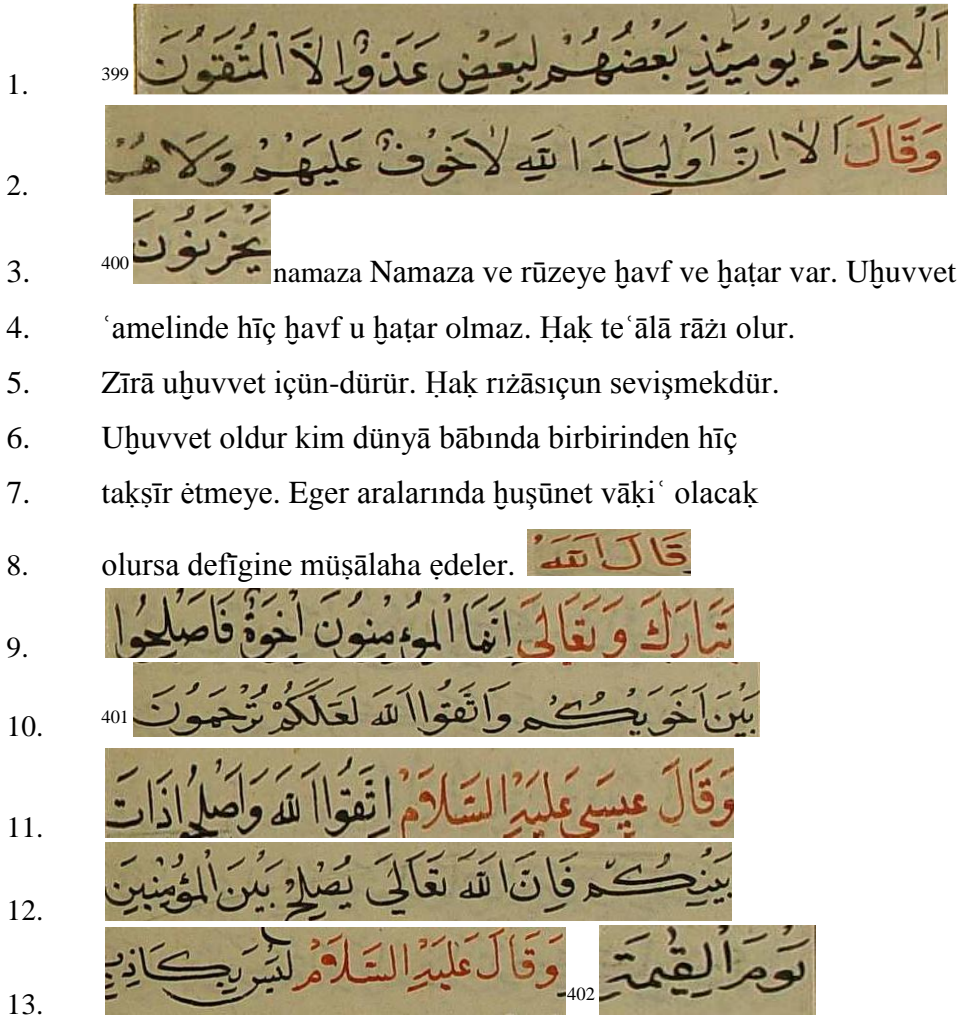 1. اَلْاَخِلَّاءُ يَوْمَئِذٍ بَعْضُهُمْ لِبَعْضٍ عَدُوٌّ اِلَّا الْمُتَّقُونَ 399
2. وَقَالَ اَلَا اِنَّ اَوْلِيَاءَ اللّٰهِ لَا خَوْفٌ عَلَيْهِمْ وَلَا هُمْ
3. يَحْزَنُونَ 400 namaza Namaza ve rūzeye ḫavf ve ḫaṭar var. Uḫuvvet
4. ʿamelinde hīç ḫavf u ḫaṭar olmaz. Ḥaḳ teʿālā rāżı olur.
5. Zīrā uḫuvvet içün-dürür. Ḥaḳ rıżāsıçun sevişmekdür.
6. Uḫuvvet oldur kim dünyā bābında birbirinden hīç
7. taḳṣīr ėtmeye. Eger aralarında ḫuşūnet vāḳiʿ olacaḳ
8. olursa defīgine müṣālaha ẹdeler. قَالَ اللّٰهُ
9. تَبَارَكَ وَتَعَالَى اِنَّمَا الْمُؤْمِنُونَ اِخْوَةٌ فَاَصْلِحُوا
10. بَيْنَ اَخَوَيْكُمْ وَاتَّقُوا اللّٰهَ لَعَلَّكُمْ تُرْحَمُونَ 401
11. وَقَالَ عِيسَى عَلَيْهِ السَّلَامُ اِتَّقُوا اللّٰهَ وَاَصْلِحُوا ذَاتَ
12. بَيْنِكُمْ فَاِنَّ اللّٰهَ تَعَالَى يُصْلِحُ بَيْنَ الْمُؤْمِنِينَ
13. يَوْمَ الْقِيٰمَةِ 402 وَقَالَ عَلَيْهِ السَّلَامُ لَيْسَ بِكَاذِبٍ